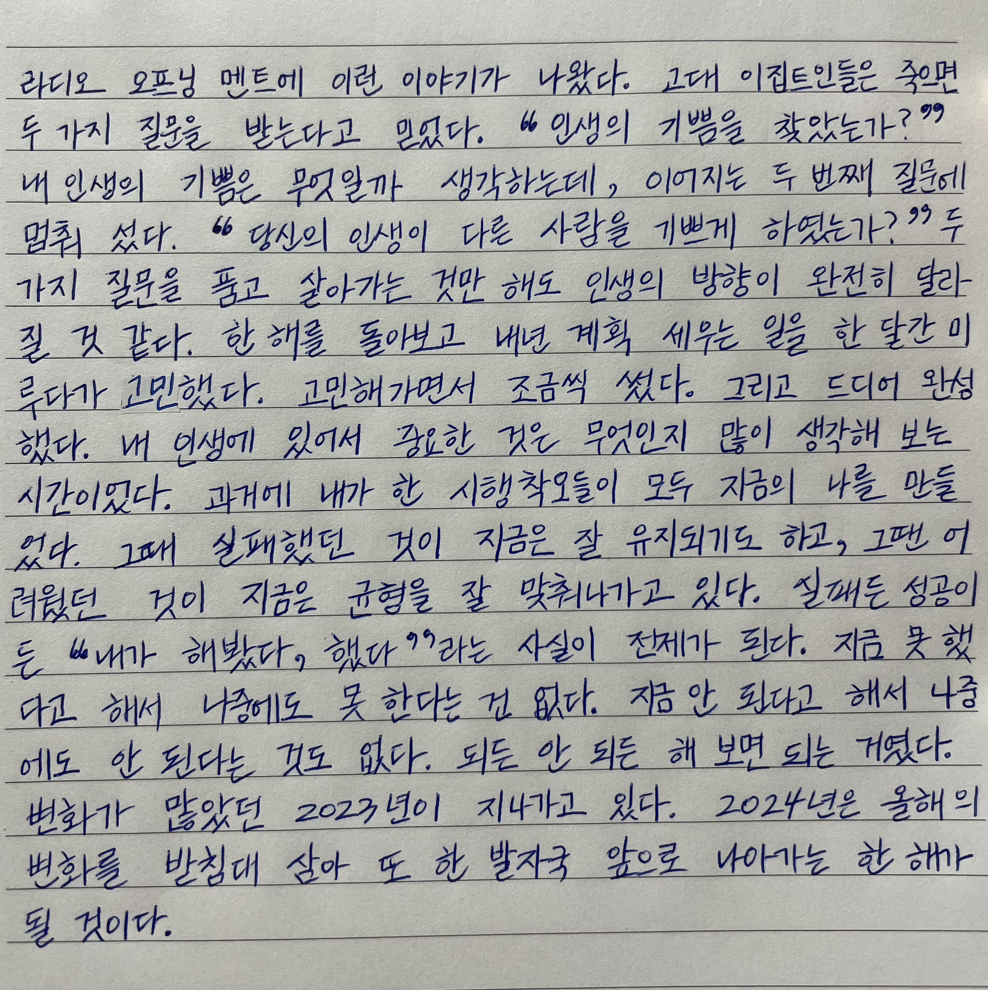 라디오 오프닝 멘트에 이런 이야기가 나왔다. 고대 이집트인들은 죽으면
두 가지 질문을 받는다고 믿었다. “인생의 기쁨을 찾았는가?”
내 인생의 기쁨은 무엇일까 생각하는데, 이어지는 두 번째 질문에
멈춰 섰다. “당신의 인생이 다른 사람을 기쁘게 하였는가?” 두
가지 질문을 품고 살아가는 것만 해도 인생의 방향이 완전히 달라
질 것 같다. 한 해를 돌아보고 내년 계획 세우는 일을 한 달간 미
루다가 고민했다. 고민해가면서 조금씩 썼다. 그리고 드디어 완성
했다. 내 인생에 있어서 중요한 것은 무엇인지 많이 생각해 보는
시간이었다. 과거에 내가 한 시행착오들이 모두 지금의 나를 만들
었다. 그때 실패했던 것이 지금은 잘 유지되기도 하고, 그땐 어
려웠던 것이 지금은 균형을 잘 맞춰나가고 있다. 실패든 성공이
든 “내가 해봤다, 했다”라는 사실이 전제가 된다. 지금 못 했
다고 해서 나중에도 못 한다는 건 없다. 지금 안 된다고 해서 나중
에도 안 된다는 것도 없다. 되든 안 되든 해 보면 되는 거였다.
변화가 많았던 2023년이 지나가고 있다. 2024년은 올해의
변화를 받침대 삼아 또 한 발자국 앞으로 나아가는 한 해가
될 것이다.